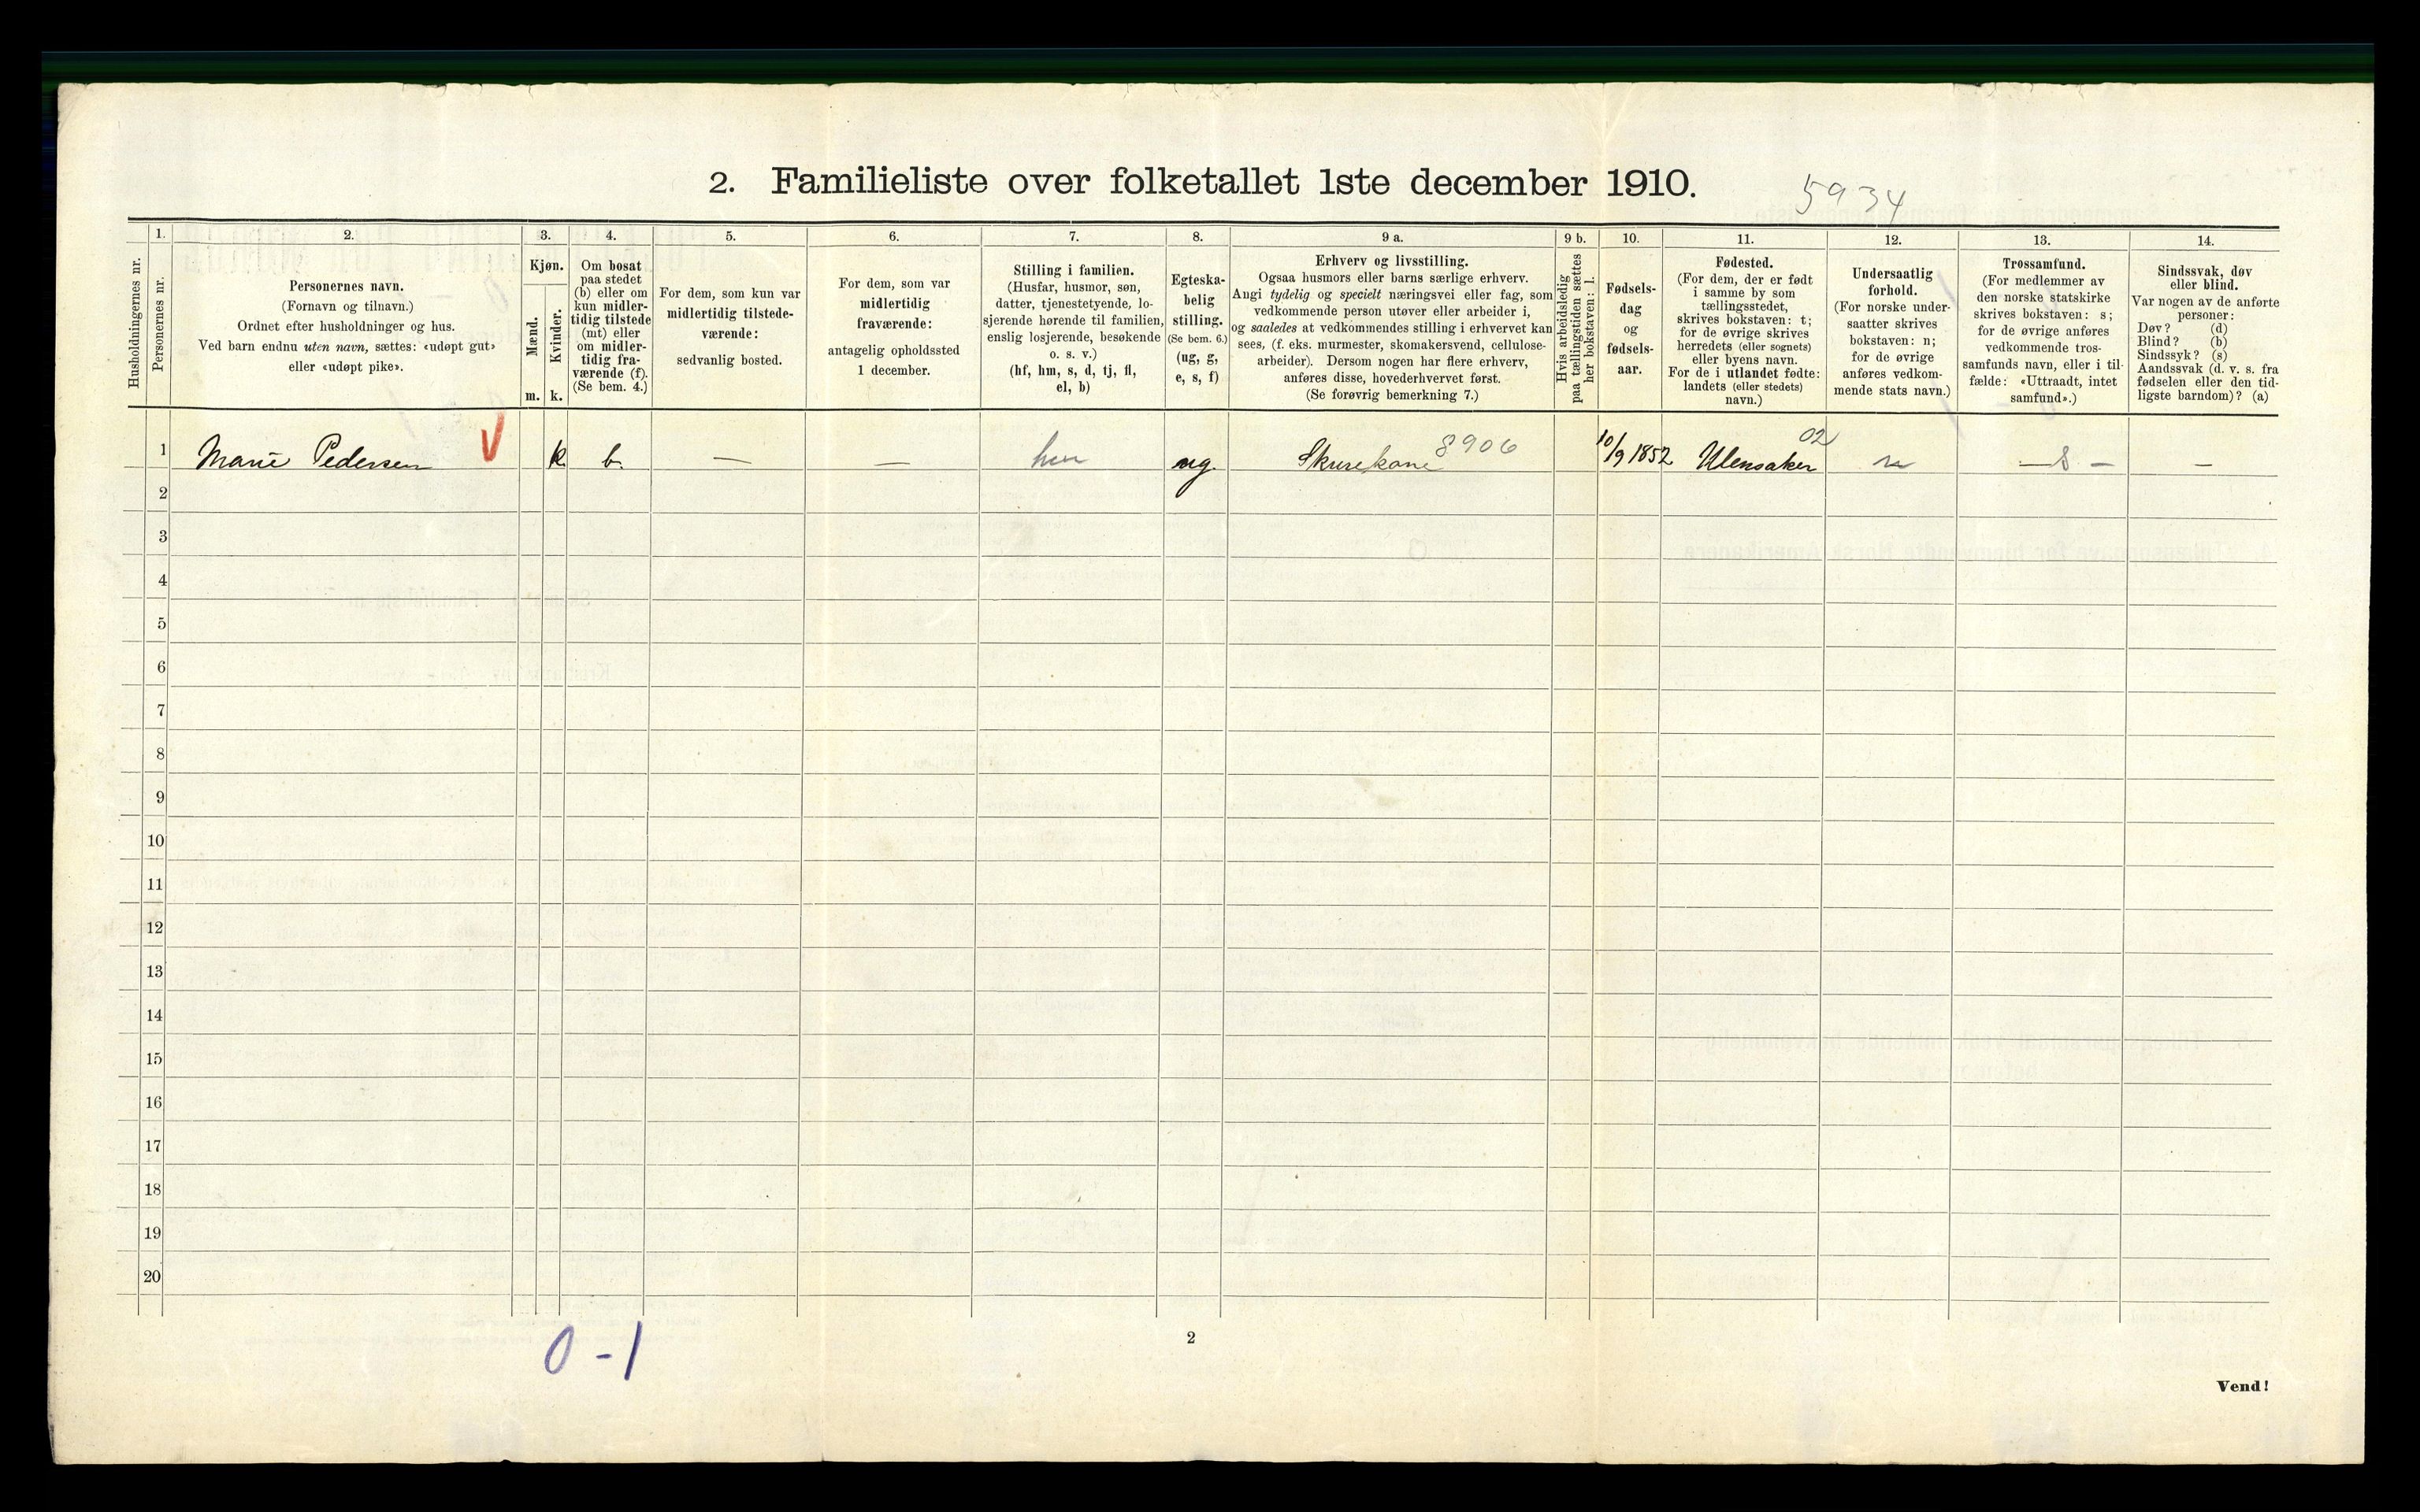 2. Familieliste over folketallet 1ste december 1910.
5934
Husholdningernes nr.
1.
Personernes nr.
2.
Personernes navn.
(Fornavn og tilnavn.)
Ordnet efter husholdninger og hus.
Ved barn endnu uten navn, sættes: «udøpt gut»
eller «udøpt pike».
3.
Kjøn.
Mænd.
Kvinder.
m. k.
4.
Om bosat
paa stedet
(b) eller om
kun midler-
tidig tilstede
(mt) eller
om midler-
tidig fra-
værende (f).
(Se bem. 4.)
5.
For dem, som kun var
midlertidig tilstede-
værende:
sedvanlig bosted.
6.
For dem, som var
midlertidig
fraværende:
antagelig opholdssted
1 december.
7.
Stilling i familien.
(Husfar, husmor, søn,
datter, tjenestetyende, lo-
sjerende hørende til familien,
enslig losjerende, besøkende
o. s. v.)
(hf, hm, s, d, tj, fl,
el, b)
8.
Egteska-
belig
stilling.
(Se bem. 6.)
(ug, g,
e, s, f)
9 a.
Erhverv og livsstilling.
Ogsaa husmors eller barns særlige erhverv.
Angi tydelig og specielt næringsvei eller fag, som
vedkommende person utøver eller arbeider i,
og saaledes at vedkommendes stilling i erhvervet kan
sees, (f. eks. murmester, skomakersvend, cellulose-
arbeider). Dersom nogen har flere erhverv,
anføres disse, hovederhvervet først.
(Se forøvrig bemerkning 7.)
9 b.
Hvis arbeidsledig
paa tællingstiden sættes
her bokstaven: l.
10.
Fødsels-
dag
og
fødsels-
aar.
11.
Fødested.
(For dem, der er født
i samme by som
tællingsstedet,
skrives bokstaven: t;
for de øvrige skrives
herredets (eller sognets)
eller byens navn.
For de i utlandet fødte:
landets (eller stedets)
navn.)
12.
Undersaatlig
forhold.
(For norske under-
saatter skrives
bokstaven: n;
for de øvrige
anføres vedkom-
mende stats navn.)
13.
Trossamfund.
(For medlemmer av
den norske statskirke
skrives bokstaven: s;
for de øvrige anføres
vedkommende tros-
samfunds navn, eller i til-
fælde: «Uttraadt, intet
samfund».)
14.
Sindssvak, døv
eller blind.
Var nogen av de anførte
personer:
Døv? (d)
Blind? (b)
Sindssyk? (s)
Aandssvak (d. v. s. fra
fødselen eller den tid-
ligste barndom)? (a)
1 Marie Pedersen V k b. — — hm ug. Skurekone 8906 10/9 1852 Ulensaker 02 n — s — —
2
3
4
5
6
7
8
9
10
11
12
13
14
15
16
17
18
19
20
0-1
2
Vend!